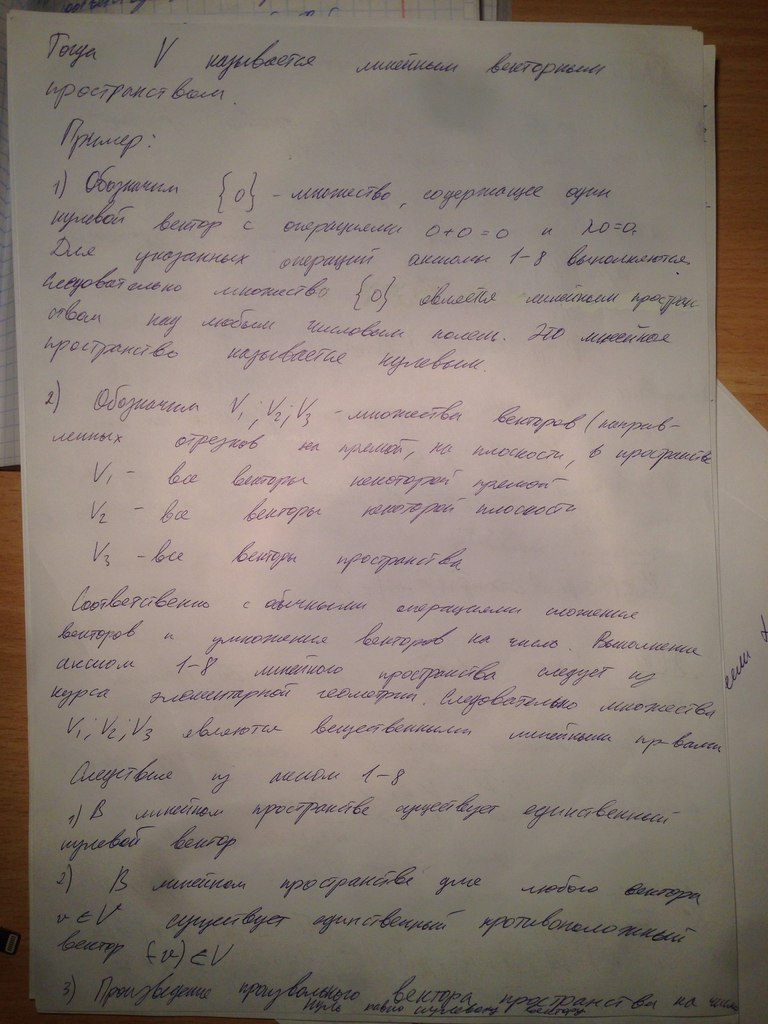 Тогда V называется линейным векторным
пространством.
Пример:
1) Обозначим {0} - множество, содержащее один
нулевой вектор с операциями 0+0=0 и λ0=0.
Для указанных операций аксиомы 1-8 выполняются.
Следовательно множество {0} является линейным простран
ством над любым числовым полем. Это линейное
пространство называется нулевым.
2) Обозначим V1; V2; V3 - множества векторов (направ-
ленных отрезков на прямой, на плоскости, в пространстве
V1 - все векторы некоторой прямой
V2 - все векторы некоторой плоскости
V3 - все векторы пространства
Соответственно с обычными операциями сложения
векторов и умножения векторов на число. Выполнение
аксиом 1-8 линейного пространства следует из
курса элементарной геометрии. Следовательно множества
V1; V2; V3 являются вещественными линейными пр-вами
Следствия из аксиом 1-8
1) В линейном пространстве существует единственный
нулевой вектор
2) В линейном пространстве для любого вектора
v ∈ V существует единственный противоположный
вектор (-v) ∈ V
3) Произведение произвольного вектора пространства на число
нуль равно нулевому вектору
если